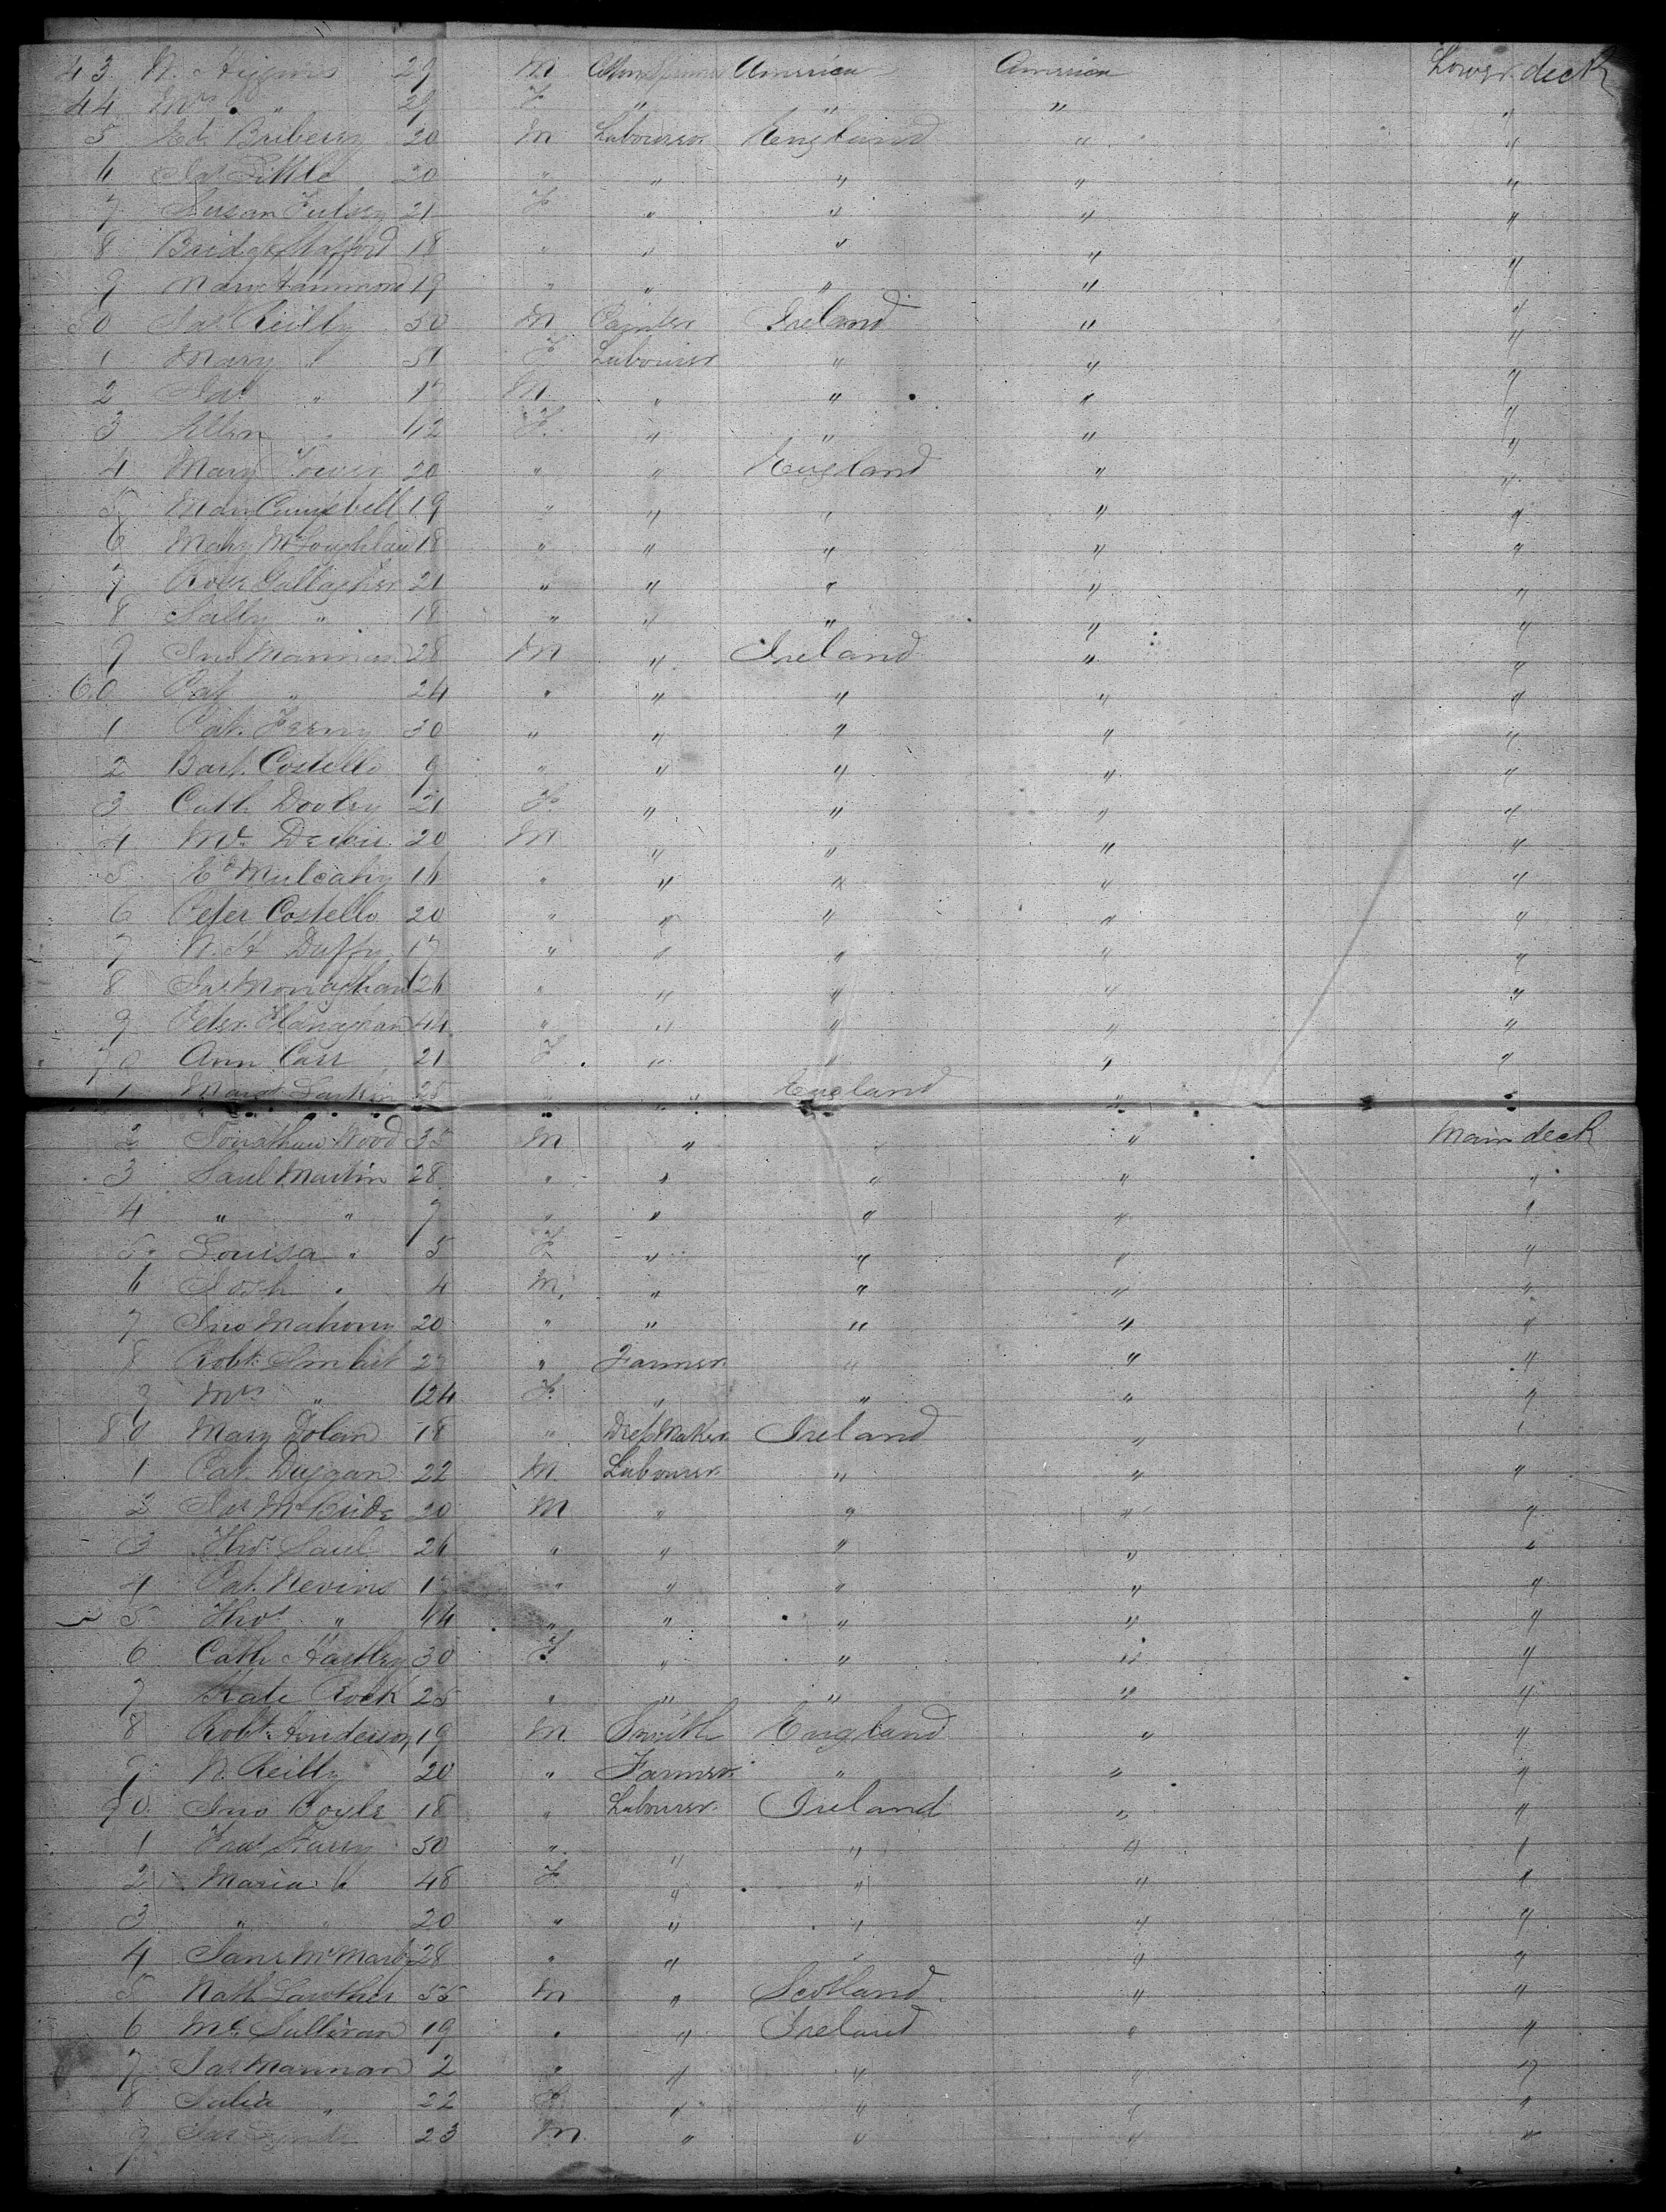 43 N. Higgins 29 M America America Lower deck
44 Mrs " 29 F " " " "
5 Ed. Briberry 20 M Labourer England " "
6 Jas Little 20 " " " " "
7 Susan 21 F " " " "
8 Bridget Stafford 18 " " " " "
9 Mary Hammond 19 " " " " "
50 Jas Reilly 50 M Painter Ireland " "
1 Mary " 51 F Labourer " " "
2 Jas " 17 M " " " "
3 Ellen " 12 F " " " "
4 Mary 20 " " England " "
5 Mary Campbell 19 " " " " "
6 Mary McLoughlan 18 " " " " "
7 Rose Gallagher 21 " " " " "
8 Sally " 18 " " " " "
9 Jno Mannion 28 M " Ireland " "
60 Pat " 24 " " " " "
1 Pat. 30 " " " " "
2 Bart. Costello 9 " " " " "
3 Cath Dooley 21 F " " " "
4 Ml 20 M " " " "
5 Ed Mulcahy 16 " " " " "
6 Peter Costello 20 " " " " "
7 N. H Duffy 17 " " " " "
8 Jas Monaghan 26 " " " " "
9 Peter Flanaghan 44 " " " " "
70 Ann Carr 21 F " " " "
1 Margt Larkin 25 " " England " "
2 Jonathan Wood 35 M " " " Main deck
3 Saul Martin 28 " " " " "
4 " " 7 " " " " "
5 Louisa " 5 F " " " "
6 Josh " 4 M " " " "
7 Jno Mahony 20 " " " " "
8 Robt. 27 " Farmer " " "
9 Mrs " 24 F " " " "
80 Mary Dolan 18 " Dress Maker Ireland " "
1 Pat. Duggan 22 M Labourer " " "
2 Jas McBride 20 M " " " "
3 Thos. Saul 26 " " " " "
4 Pat. Nevins 17 " " " " "
5 Thos " 44 " " " " "
6 Cath Hartley 30 F " " " "
7 Kate Rock 25 " " " " "
8 Robt. Anderson 19 M Smith England " "
9 N. Reilly 20 " Farmer " " "
90 Jno Boyle 18 " Labourer Ireland " "
1 50 " " " " "
2 Maria " 48 F " " " "
3 " " 20 " " " " "
4 Jane 28 " " " " "
5 Nath Lowther 55 M " Scotland " "
6 Ml Sullivan 19 " " Ireland " "
7 Jas Mannion 2 " " " " "
8 Julia " 22 F " " " "
9 Jas 23 M " " " "